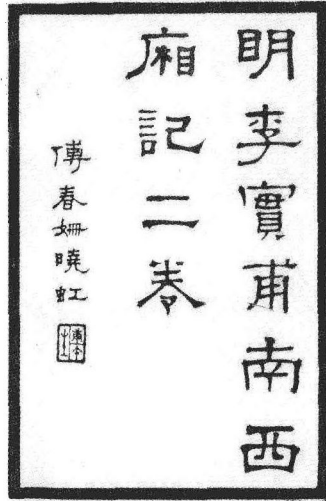 明李實甫南西
廂記二卷
傅春姍曉虹